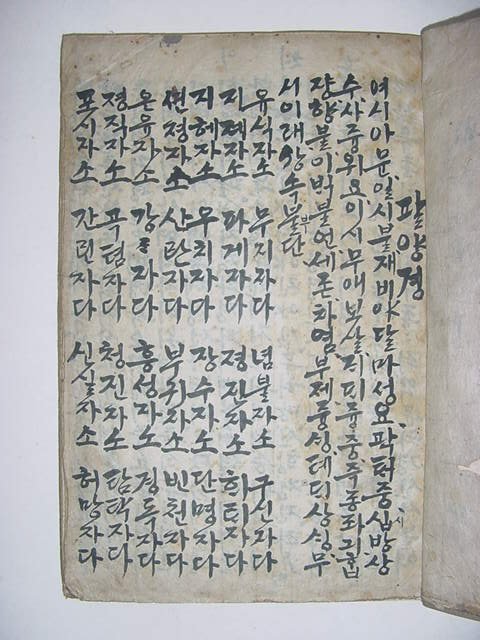 팔양경
여시아문일시불재비야달마성요확터중십방상
수사중위요이시무애보살지디즁중주종좌긔흡
쟝향불이백불언세존차염부제듕싱테디상싱무
시이래상속불단
유식자소 무지자다 념불자소 구신자다
지계자소 파계자다 정진자소 히티자다
지혜자소 우치자다 장수자소 단명자다
션졍자소 산란자다 부귀자소 빈쳔자다
온유자소 강〻자다 흥성자소 경독자다
정직자소 곡텸자다 청진자소 탐탁자다
포시자소 간린자다 신실자소 허망자다